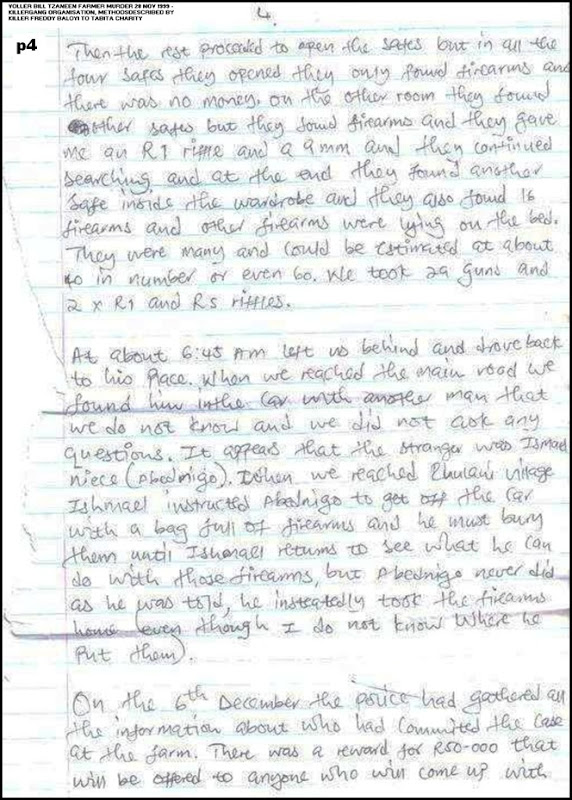 YOLLER BILL TZANEEN FARMER MURDER 28 NOV 1999 -
KILLERGANG ORGANISATION, METHODSDESCRIBED BY
KILLER FREDDY BALOYI TO TABITA CHARITY
4.
p4
Then the rest proceeded to open the safes but in all the
four safes they opened they only found firearms and
there was no money. On the other room they found
other safes but they found firearms and they gave
me an R1 riffle and a 9mm and they continued
searching and at the end they found another
safe inside the wardrobe and they also found 16
firearms and other firearms were lying on the bed.
They were many and could be estimated at about
40 in number or even 60. We took 29 guns and
2 x R1 and R5 riffles.
At about 6:45 Am left us behind and drove back
to his place. When we reached the main road we
found him in the car with another man that
we do not know and we did not ask any
questions. It appears that the stranger was Ismael
niece (Abednigo). When we reached Rhulani village
Ishmael instructed Abednigo to get off the car
with a bag full of firearms and he must bury
them until Ishmael returns to see what he can
do with those firearms, but Abednigo never did
as he was told, he insteadly took the firearms
home (even though I do not know where he
put them).
On the 6th December the police had gathered all
the information about who had committed the case
at the farm. There was a reward for R50-000 that
will be offered to anyone who will come up with